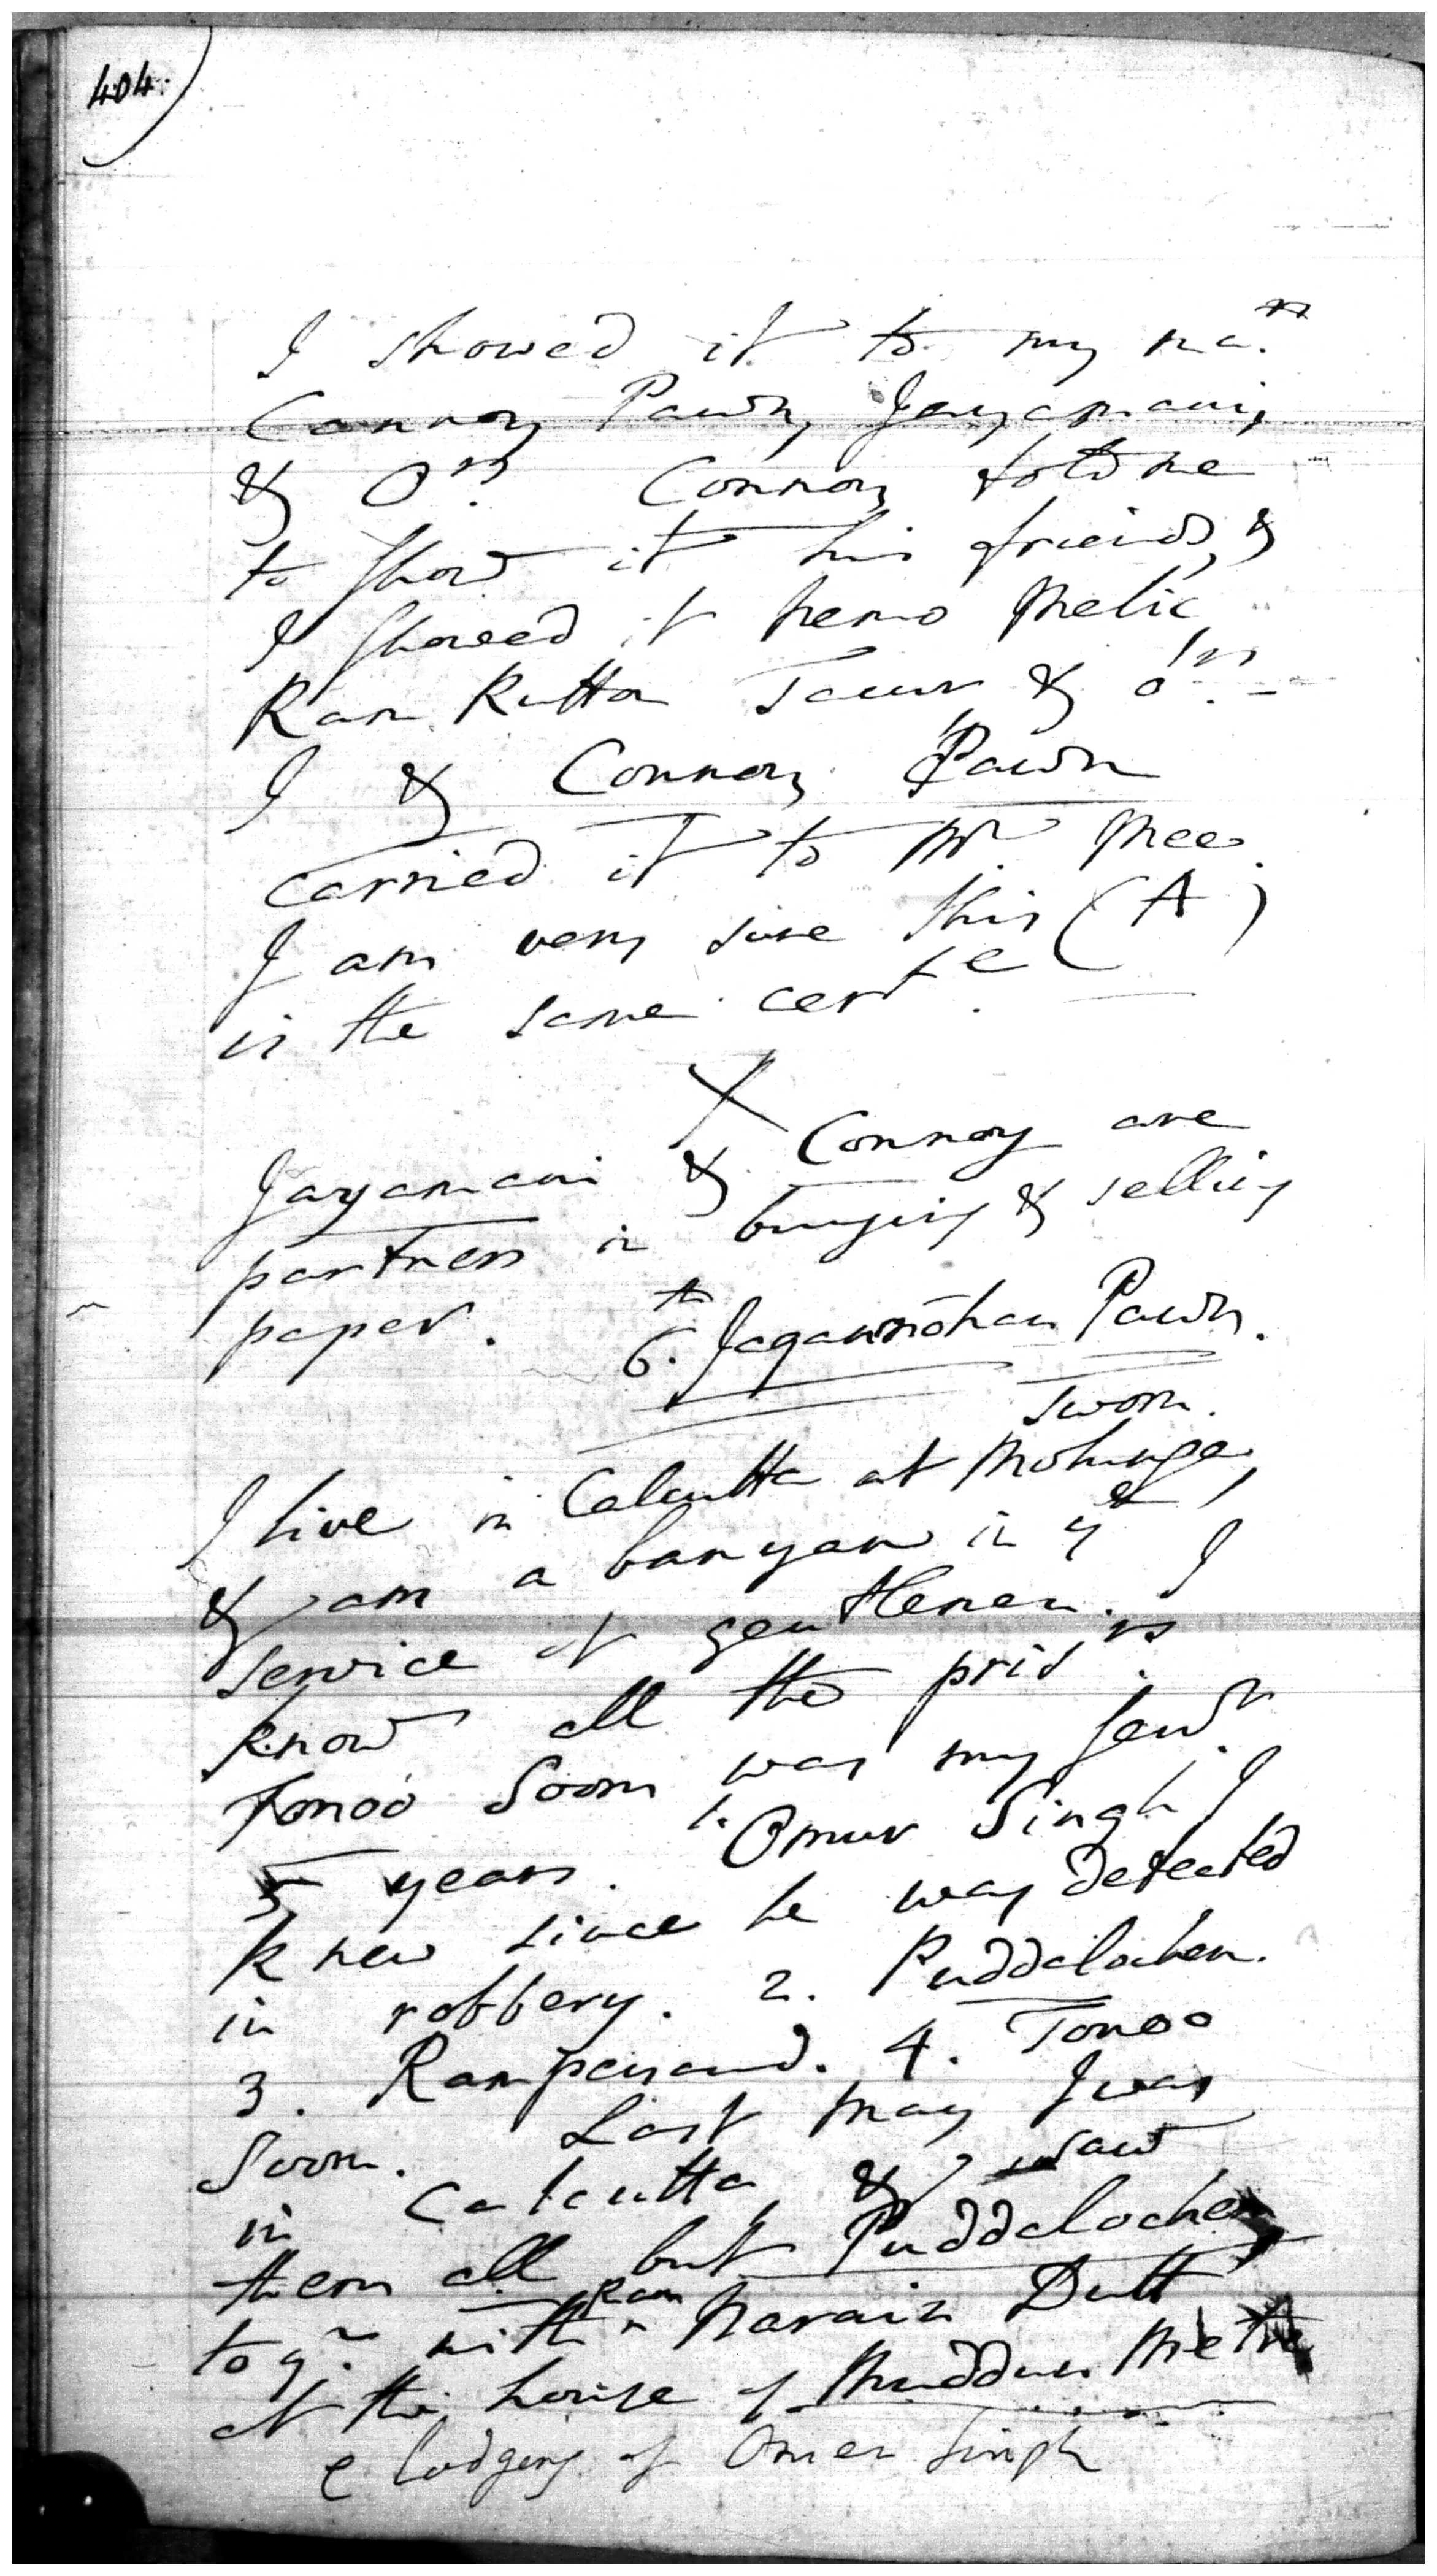 404.
I showed it to my ma.rs
Connoy Pawn, Jayamani,
& Ors. Connoy told me
to show it his friends, &
I showed it Nemo Melic
Ram Rutton Taur & ors.
I & Connoy Pawn
carried it to Mr. Mee.
I am very sure this (A)
is the same certe.
X
Jayamani & Connoy are
partners in buying & selling
paper.
6.th Jaganmohan Pawn.
sworn.
I live in Calcutta at
& am a banyan in ye
service of gentlemen. I
know all the prisrs.
Tonoo Soom was my servt.
5 years. 1. Omur Singh I
knew since he was detected
in robbery. 2. Puddalochen.
3. Rampersaud. 4. Tonoo
Soom. Last May I was
in Calcutta, & I saw
them all but Puddalochen,
togr. with Ram Narain Dutt
at the house of Muddun Metre
e lodging of Omer Singh